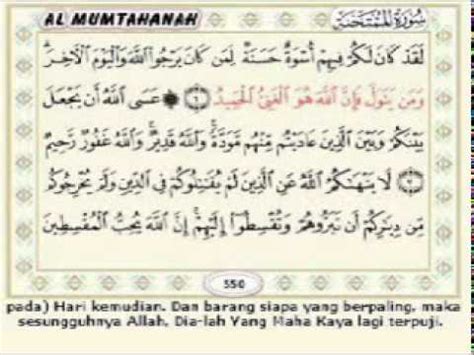 AL MUMTAHANAH
سُورَةُ المُمْتَحَنَةِ
لَقَدْ كَانَ لَكُمْ فِيهِمْ أُسْوَةٌ حَسَنَةٌ لِمَن كَانَ يَرْجُوا۟ اللَّهَ وَالْيَوْمَ الْآخِرَ ۚ
وَمَن يَتَوَلَّ فَإِنَّ اللَّهَ هُوَ الْغَنِيُّ الْحَمِيدُ ٦ ۞ عَسَى اللَّهُ أَن يَجْعَلَ
بَيْنَكُمْ وَبَيْنَ الَّذِينَ عَادَيْتُم مِّنْهُم مَّوَدَّةً ۚ وَاللَّهُ قَدِيرٌ ۚ وَاللَّهُ غَفُورٌ رَّحِيمٌ
٧ لَّا يَنْهَىٰكُمُ اللَّهُ عَنِ الَّذِينَ لَمْ يُقَٰتِلُوكُمْ فِي الدِّينِ وَلَمْ يُخْرِجُوكُم
مِّن دِيَٰرِكُمْ أَن تَبَرُّوهُمْ وَتُقْسِطُوٓا۟ إِلَيْهِمْ ۚ إِنَّ اللَّهَ يُحِبُّ الْمُقْسِطِينَ
550
pada) Hari kemudian. Dan barang siapa yang berpaling, maka
sesungguhnya Allah, Dia-lah Yang Maha Kaya lagi terpuji.